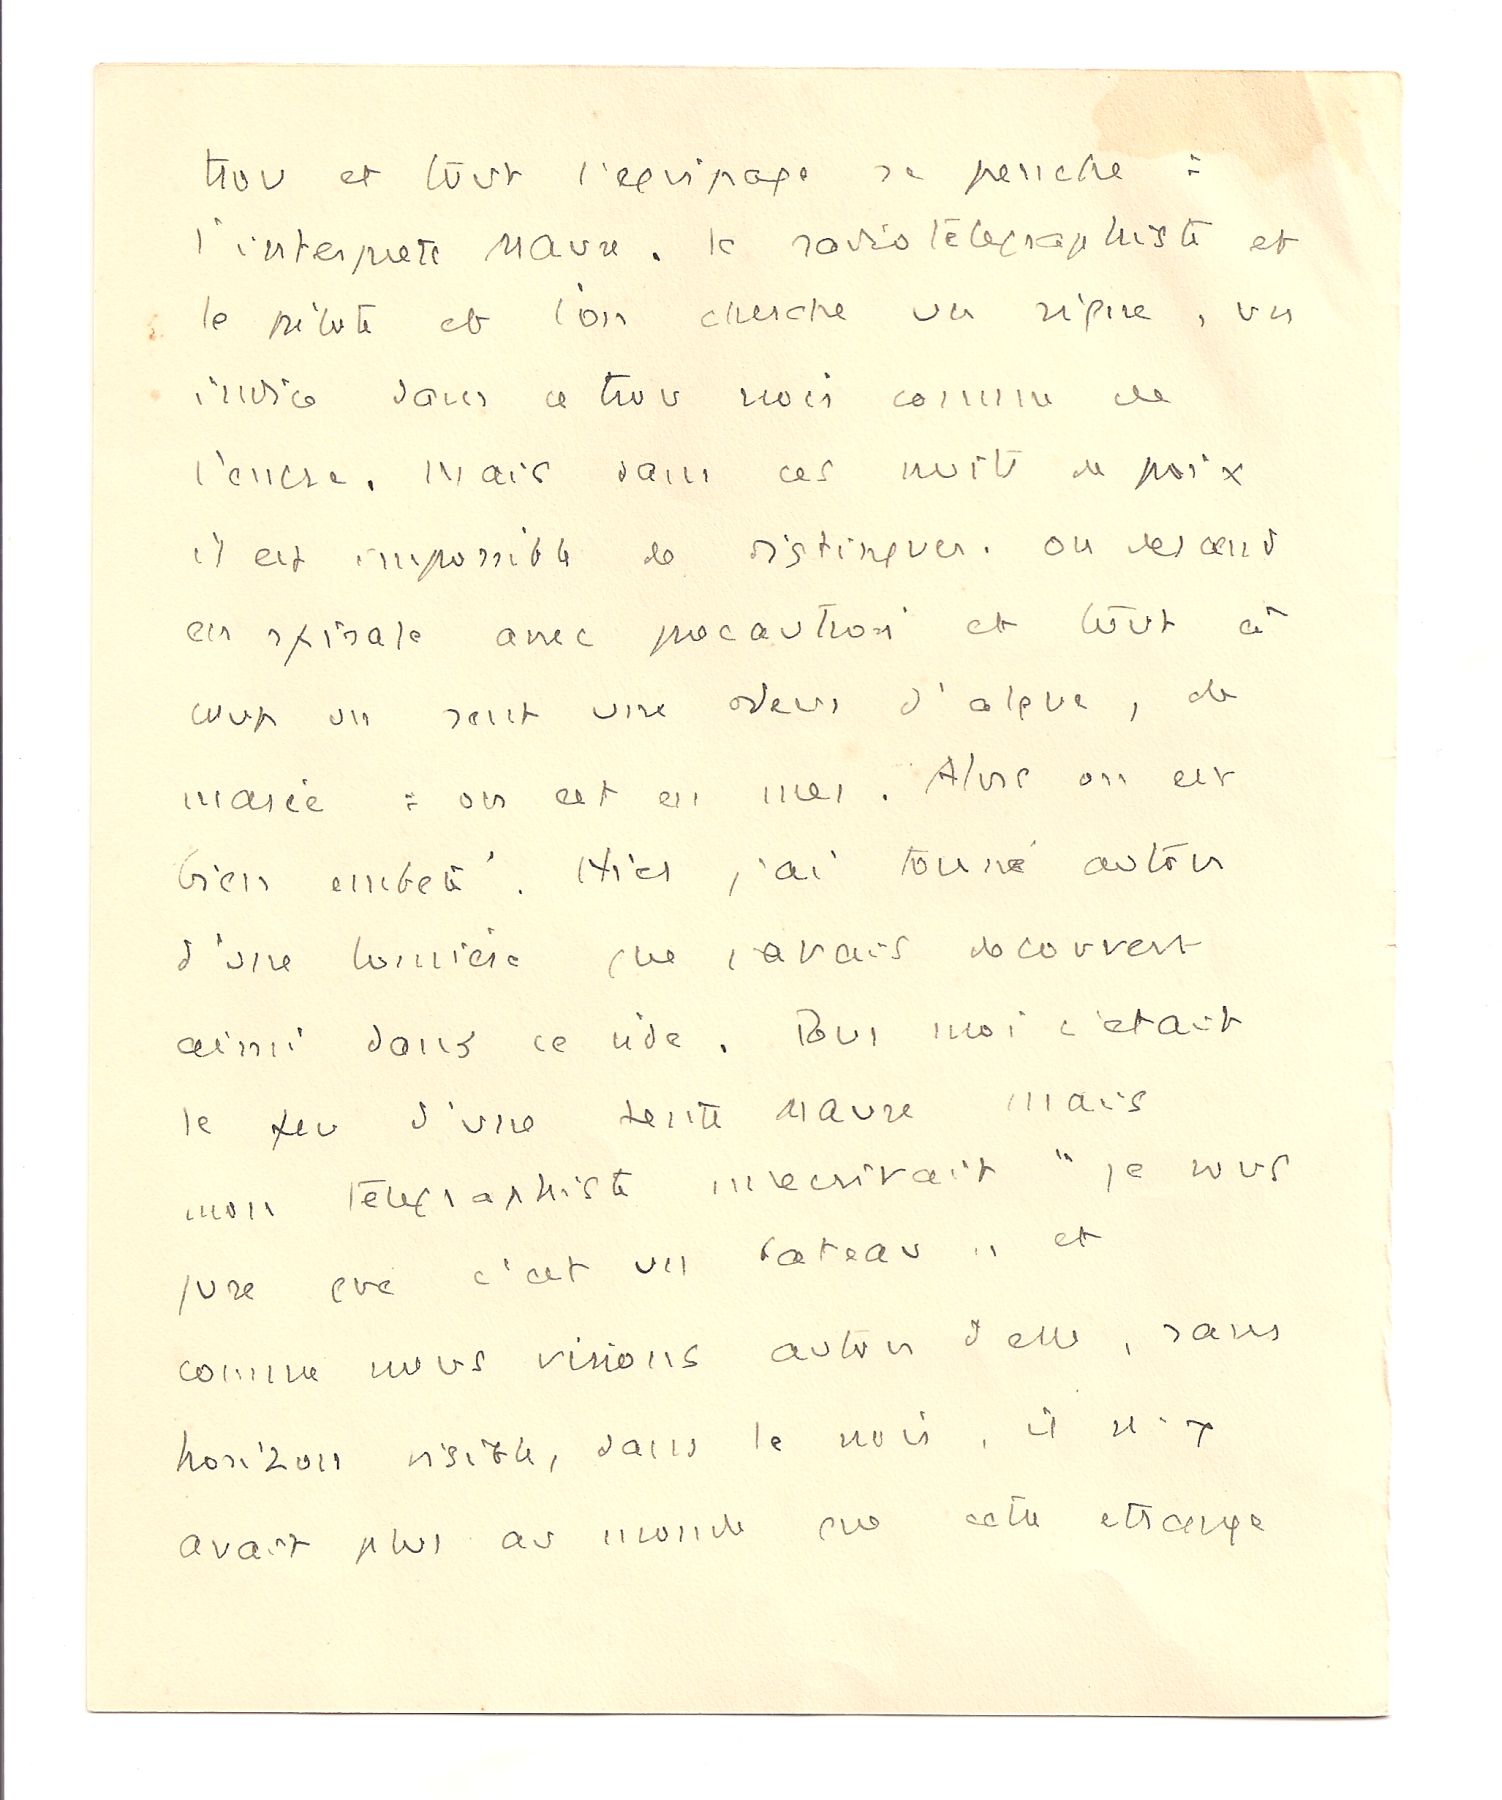 trou et tout l'equipage se penche :
l'interprete maure. le radiotélégraphiste et
le pilote et l'on cherche un signe, un
indice dans ce trou noir comme de
l'encre. Mais dans ces nuits de poix
il est impossible de distinguer. On descend
en spirale avec precaution et tout à
coup on sent une odeur d'algue, de
marée : on est en mer. Alors on est
bien embeté. Hier j'ai tourné autour
d'une lumière que j'avais decouvert
ainsi dans ce vide. Pour moi c'etait
le feu d'une tente maure mais
mon télégraphiste m'ecrivait " je vous
jure que c'est un bateau " et
comme nous virions autour d'elle, sans
horizon visible, dans le noir, il n'y
avait plus au monde que cette etrange